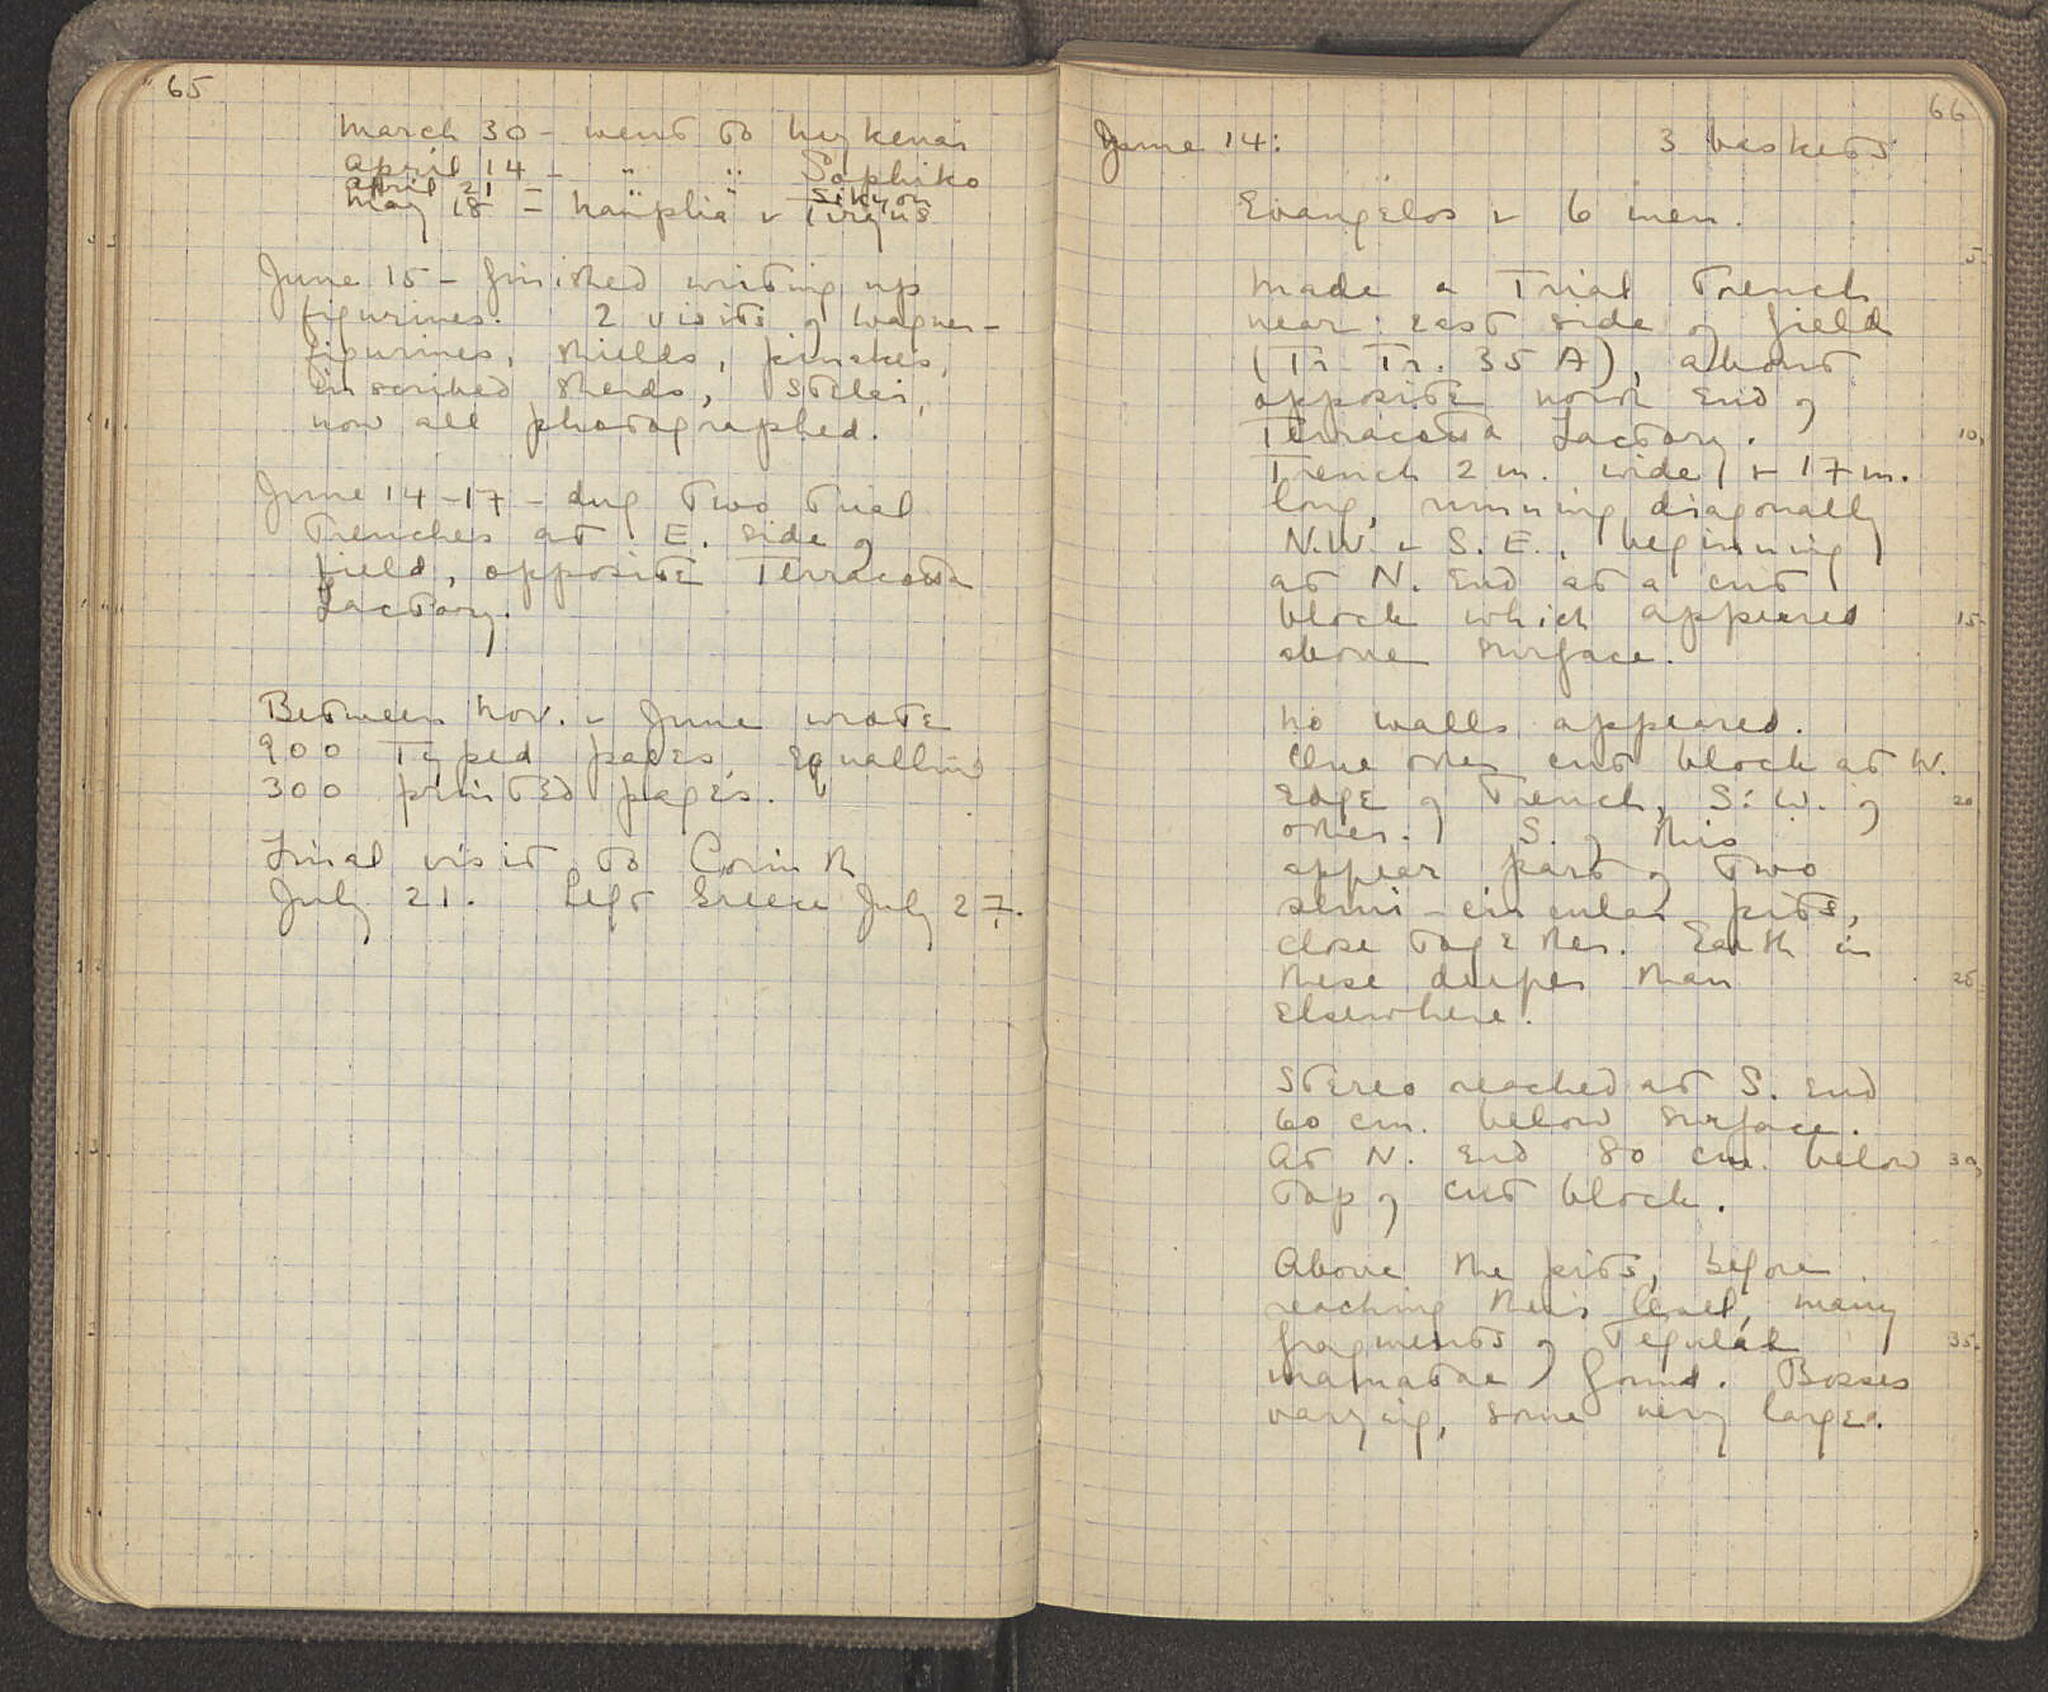 65
March 30 - went to Mykenai
April 14 - " " Sophiko
April 21 - " " Sikyon
May 18 - Nauplia & Tiryns
June 15 - finished writing up
figurines. 2 visits of Wagner -
figurines, shields, pinakes,
inscribed sherds, stelai,
now all photographed.
June 14-17 - dug two trial
trenches at E. side of
field, opposite Terracotta
Factory.
Between Nov. & June wrote
900 typed pages, equalling
300 printed pages.
Final visit to Corinth
July 21. Left Greece July 27.
66
June 14: 3 baskets
Evangelos & 6 men.
5
Made a Trial Trench
near east side of field
(Tr. Tr. 35 A), about
opposite north end of
Terracotta Factory. 10
Trench 2 m. wide & 17 m.
long, running diagonally
N.W. & S.E., beginning
at N. end at a cut
block which appeared 15
above surface.
No walls appeared.
One other cut block at W.
edge of trench, S.W. of 20
other. S. of this
appear part of two
semi-circular pits,
close together. Earth in
these deeper than 25
elsewhere.
Stereo reached at S. end
60 cm. below surface.
At N. end 80 cm. below 30
top of cut block.
Above the pits, before
reaching their level, many
fragments of tegulae 35
mamatae found. Bosses
varying, some very large.